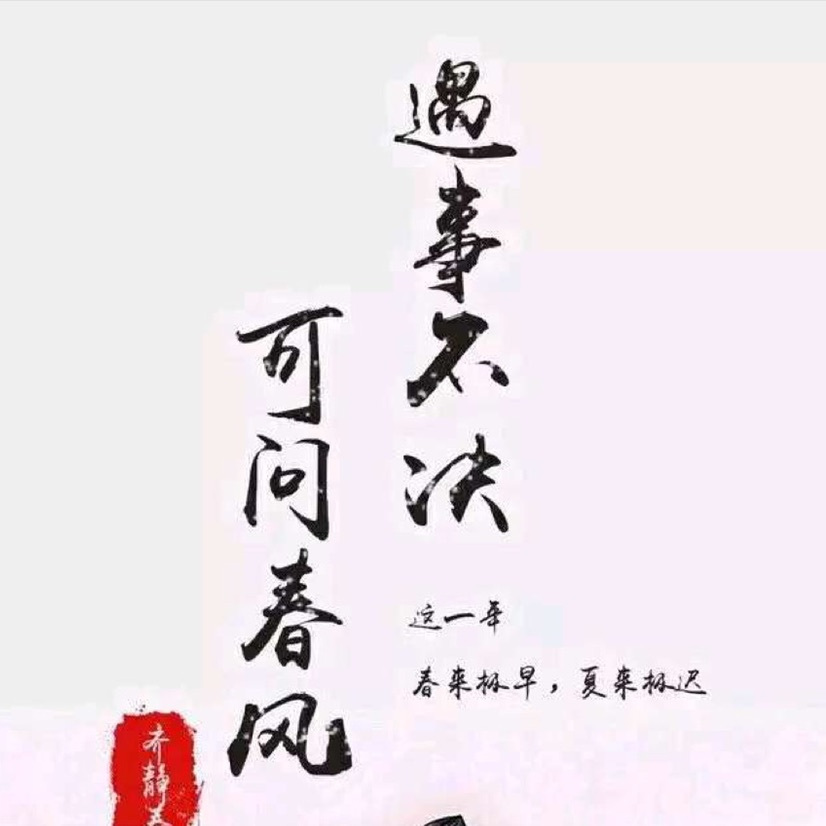 遇事不决
可问春风
这一年
春来极早，夏来极迟
齐静